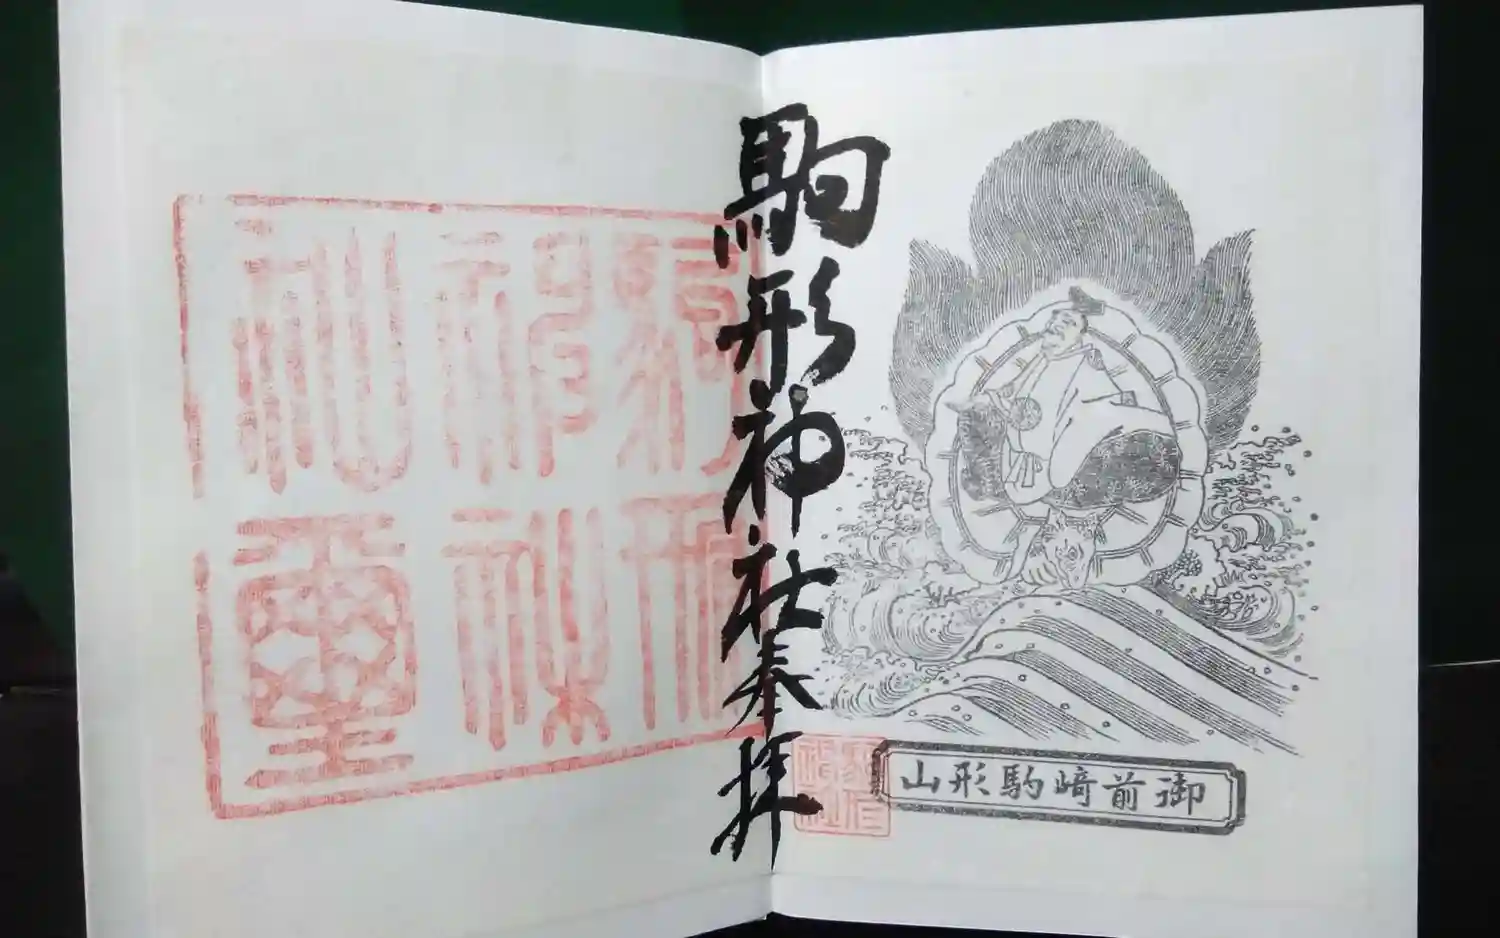 駒形神社奉拝
御前﨑駒形山
駒形
神社
之璽